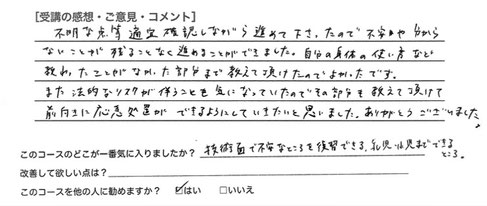 [受講の感想・ご意見・コメント]
不明な点等適宜確認しながら進めて下さったので不安や分から
ないことが残ることなく進めることができました。自分の身体の使い方など
教わったことがなかった部分まで教えて頂けたのでよかったです。
また法的なリスクが伴うことも気になっていたのでその部分も教えて頂けて
前向きに応急処置ができるようにしていきたいと思いました。ありがとうございました。
このコースのどこが一番気に入りましたか？ 技術面で不安なところを復習できる、乳児・小児までできる
ところ。
改善して欲しい点は？
このコースを他の人に勧めますか？ ☑はい □いいえ